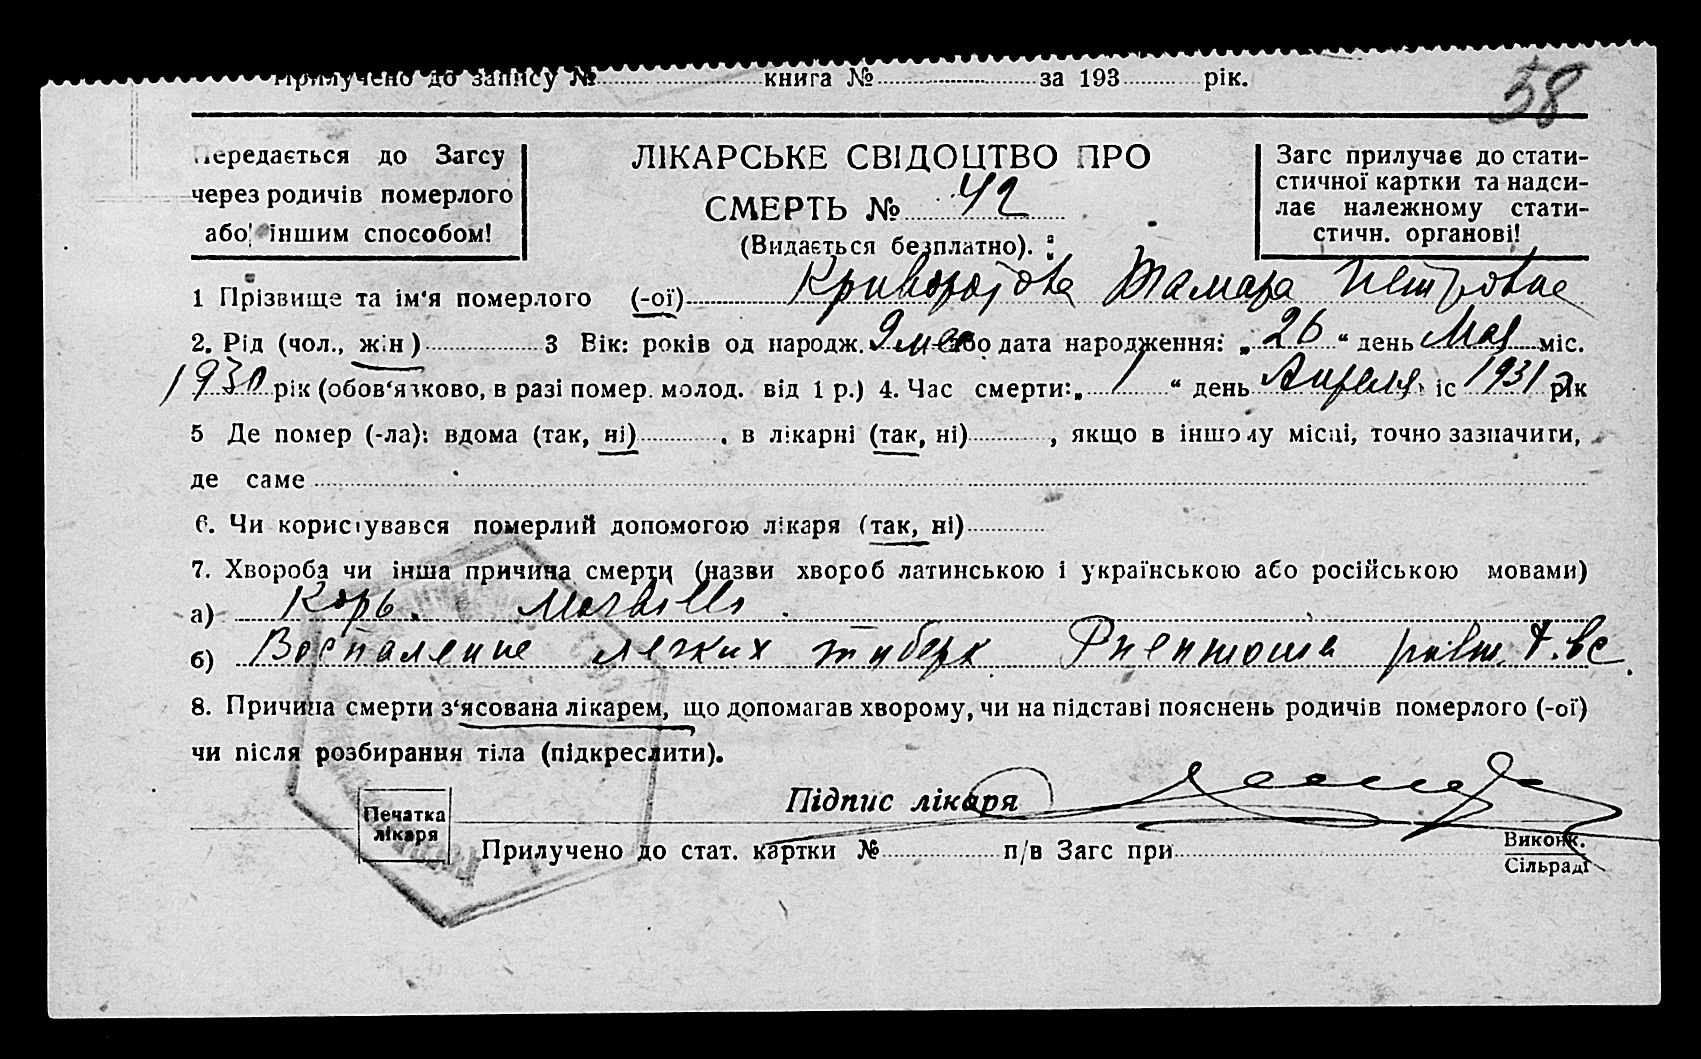 Прилучено до запису № книга № за 193 рік.
58
Передається до Загсу
через родичів померлого
або іншим способом!
ЛІКАРСЬКЕ СВІДОЦТВО ПРО
СМЕРТЬ № 42
(Видається безплатно).
Загс прилучає до стати-
стичної картки та надси-
лає належному стати-
стичн. органові!
1 Прізвище та ім'я померлого (-ої) Тамара Петровна
2. Рід (чол., жін) 3 Вік: років од народж. 9 мес або дата народження: „ 26 “ день Мая міс.
1930 рік (обов'язково, в разі помер. молод. від 1 р.) 4. Час смерти: „ 1 “ день Апреля міс 1931 рік
5 Де помер (-ла): вдома (так, ні) , в лікарні (так, ні) , якщо в іншому місці, точно зазначити,
де саме
6. Чи користувався померлий допомогою лікаря (так, ні)
7. Хвороба чи інша причина смерти (назви хвороб латинською і українською або російською мовами)
а) Корь. Morbilli
б) Воспаление легких туберк
8. Причина смерти з'ясована лікарем, що допомагав хворому, чи на підставі пояснень родичів померлого (-ої)
чи після розбирання тіла (підкреслити).
Підпис лікаря
Печатка
лікаря
Прилучено до стат. картки № п/в Загс при Виконк.
Сільраді